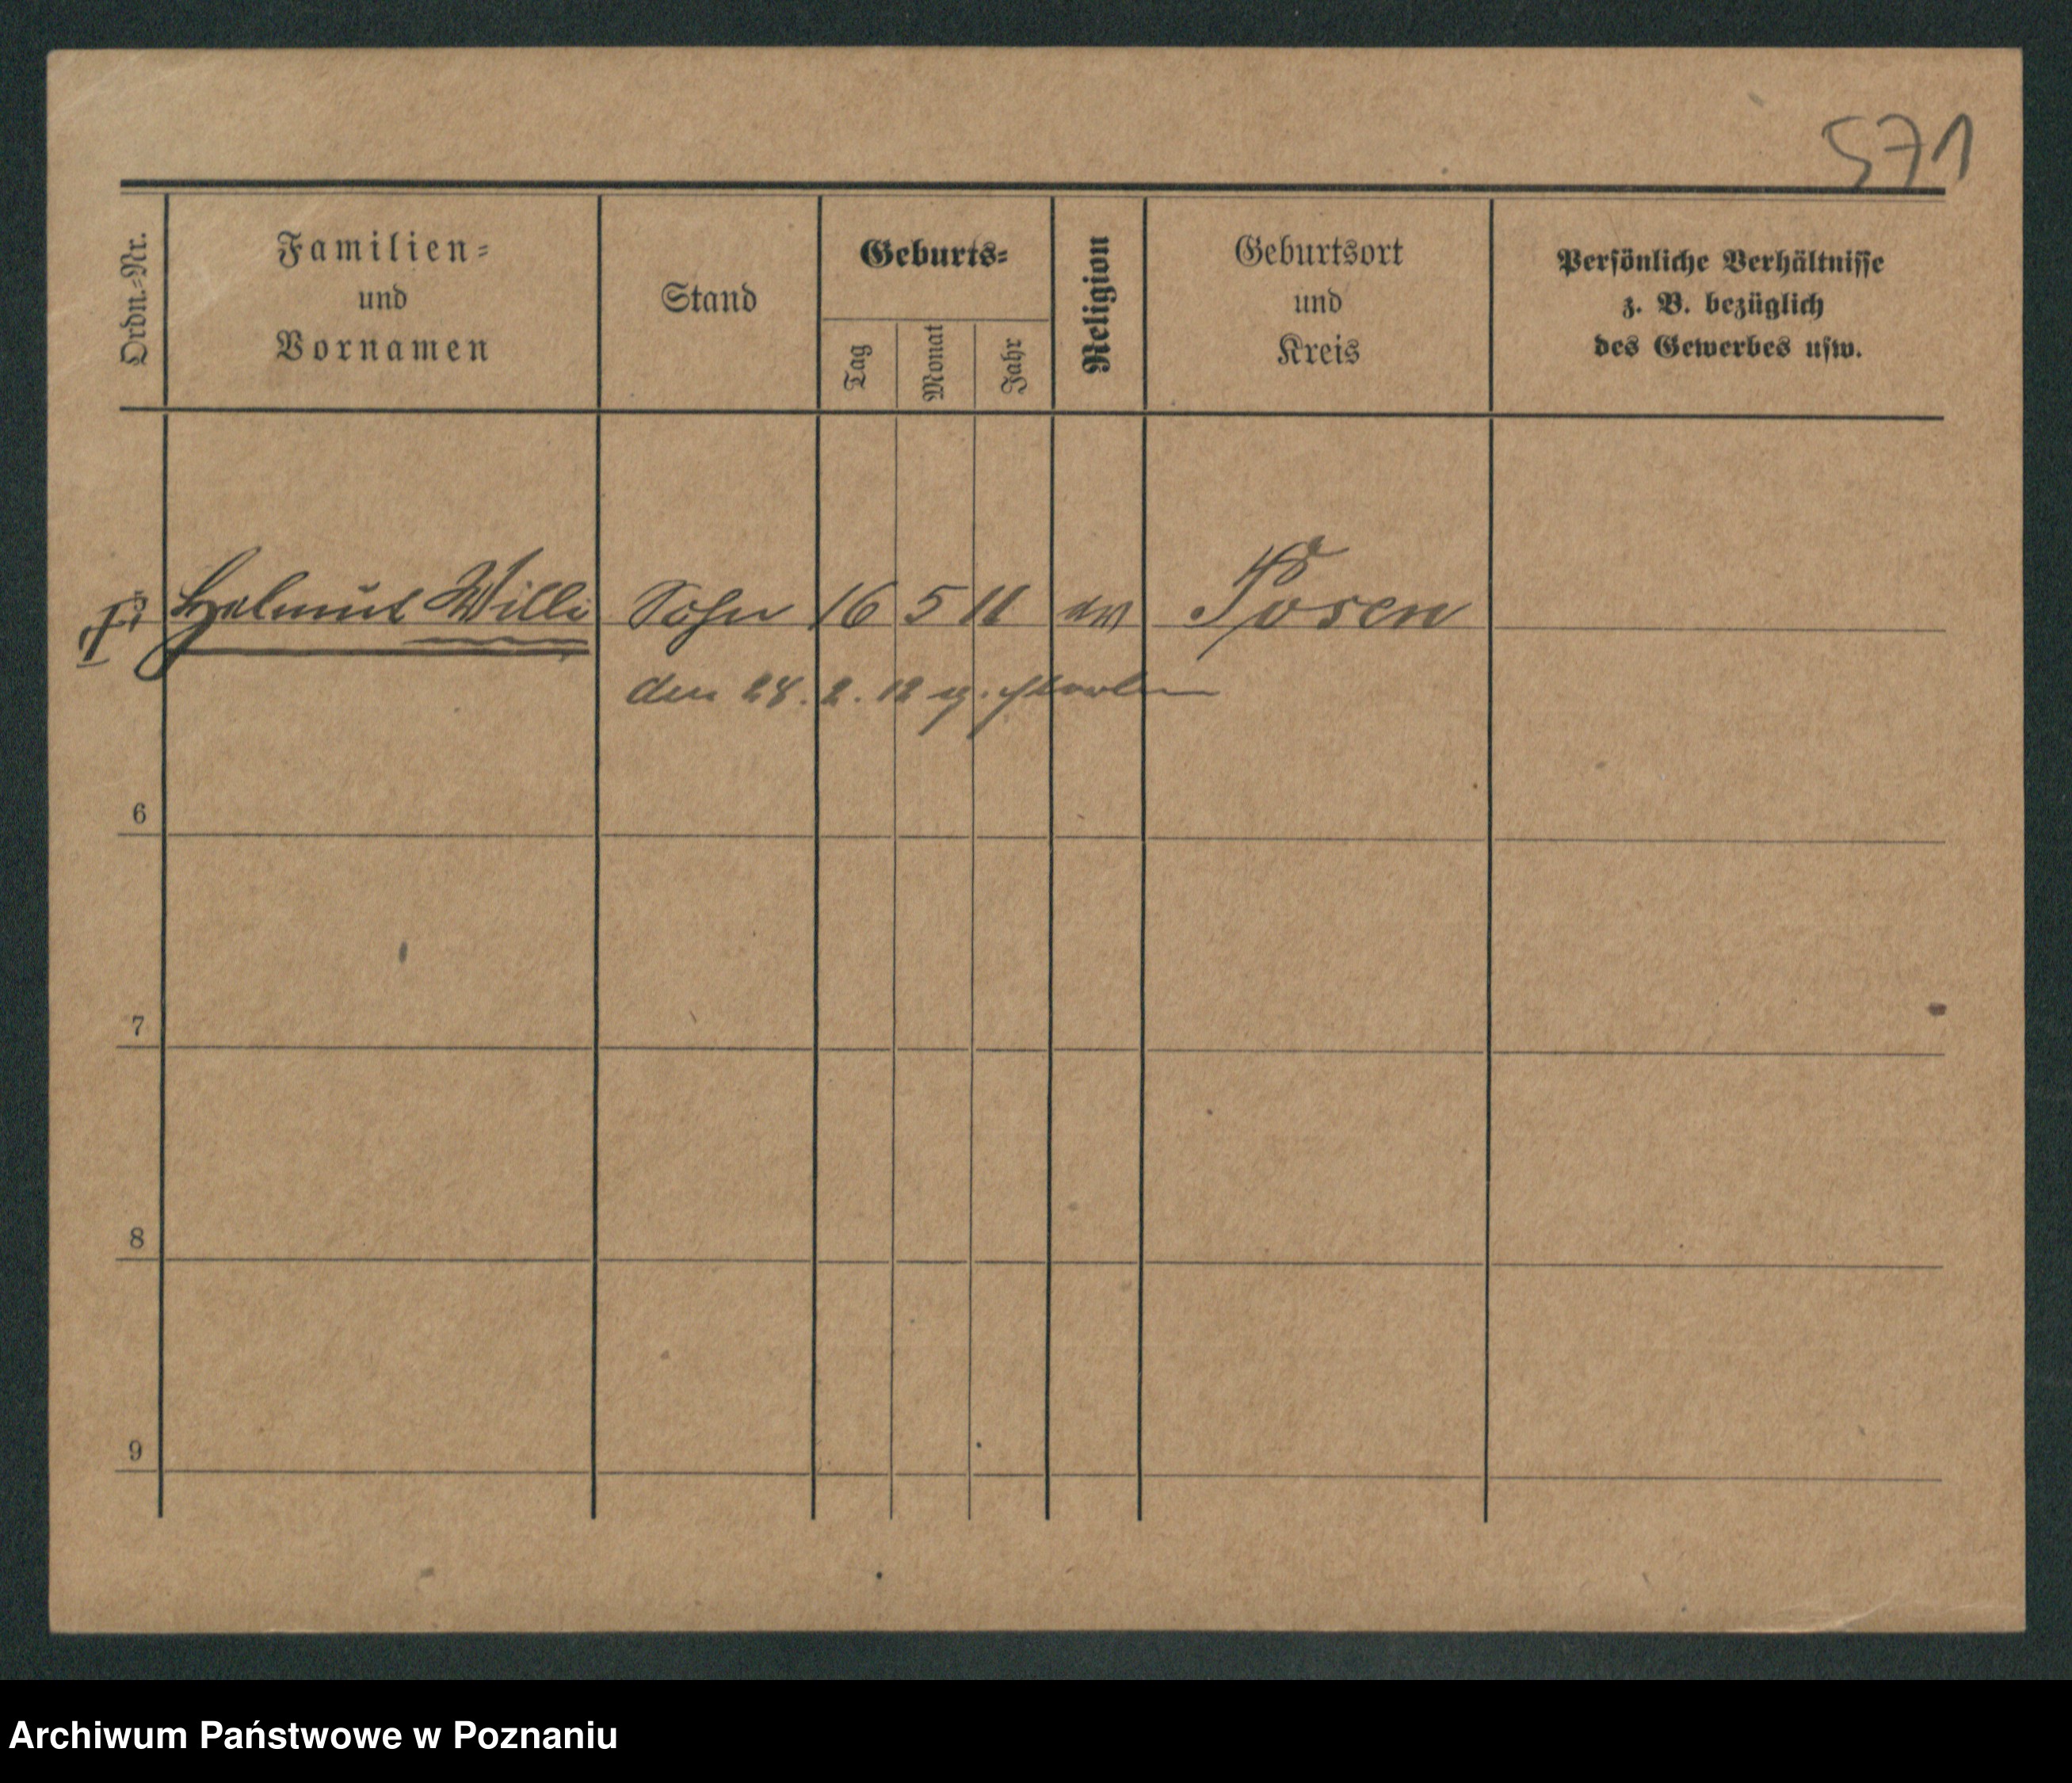 571
Ordn.-Nr.
Familien-
und
Vornamen
Stand
Geburts-
Tag
Monat
Jahr
Religion
Geburtsort
und
Kreis
Persönliche Verhältnisse
z. B. bezüglich
des Gewerbes usw.
Helmut Willi Sohn 16 5 11 ev Posen
den 28. 2. 12 gestorben
6
7
8
9
Archiwum Państwowe w Poznaniu